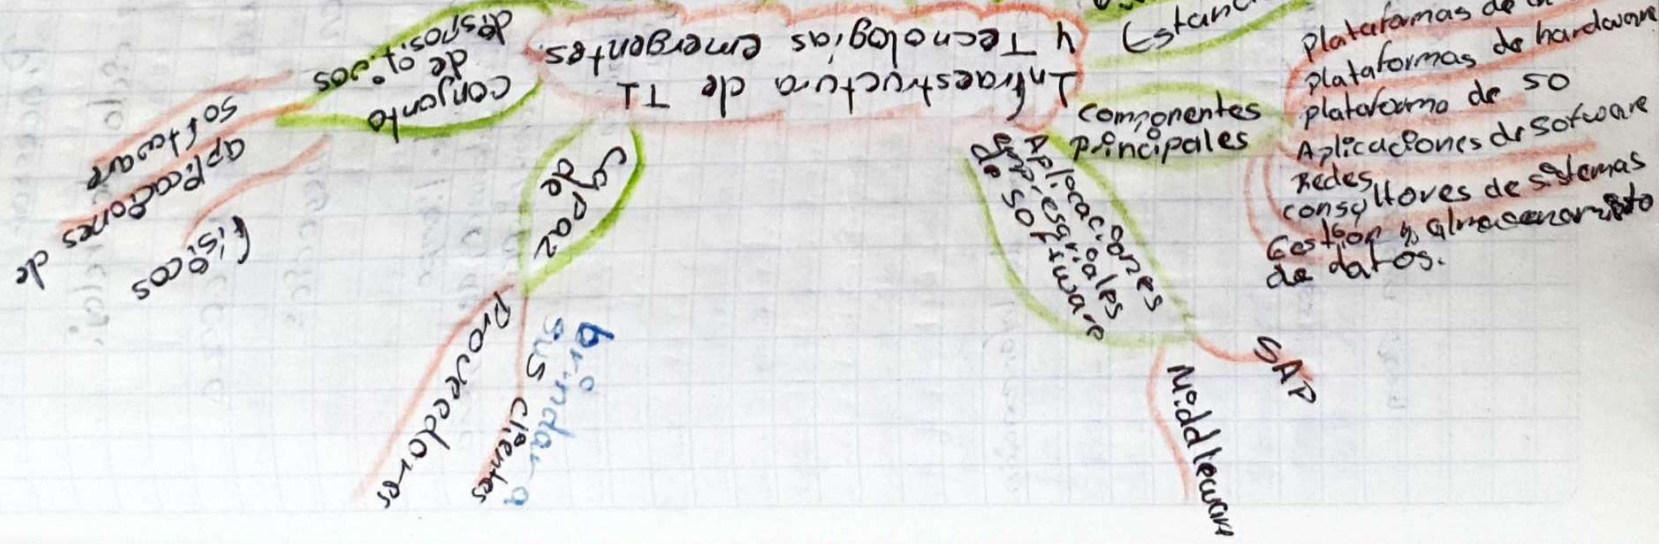 Infraestructura de TI
y Tecnologías emergentes.
conjunto
de
disposit.
físicos
aplicaciones de
software
capaz
de
brindar a
sus clientes
Proveedores
componentes
principales
plataformas de
plataformas de hardware
plataforma de SO
Aplicaciones de Sofware
Redes
consultores de sistemas
Gestión y almacenamiento
de datos.
Aplocaciones
empresariales
de software
SAP
Middleware